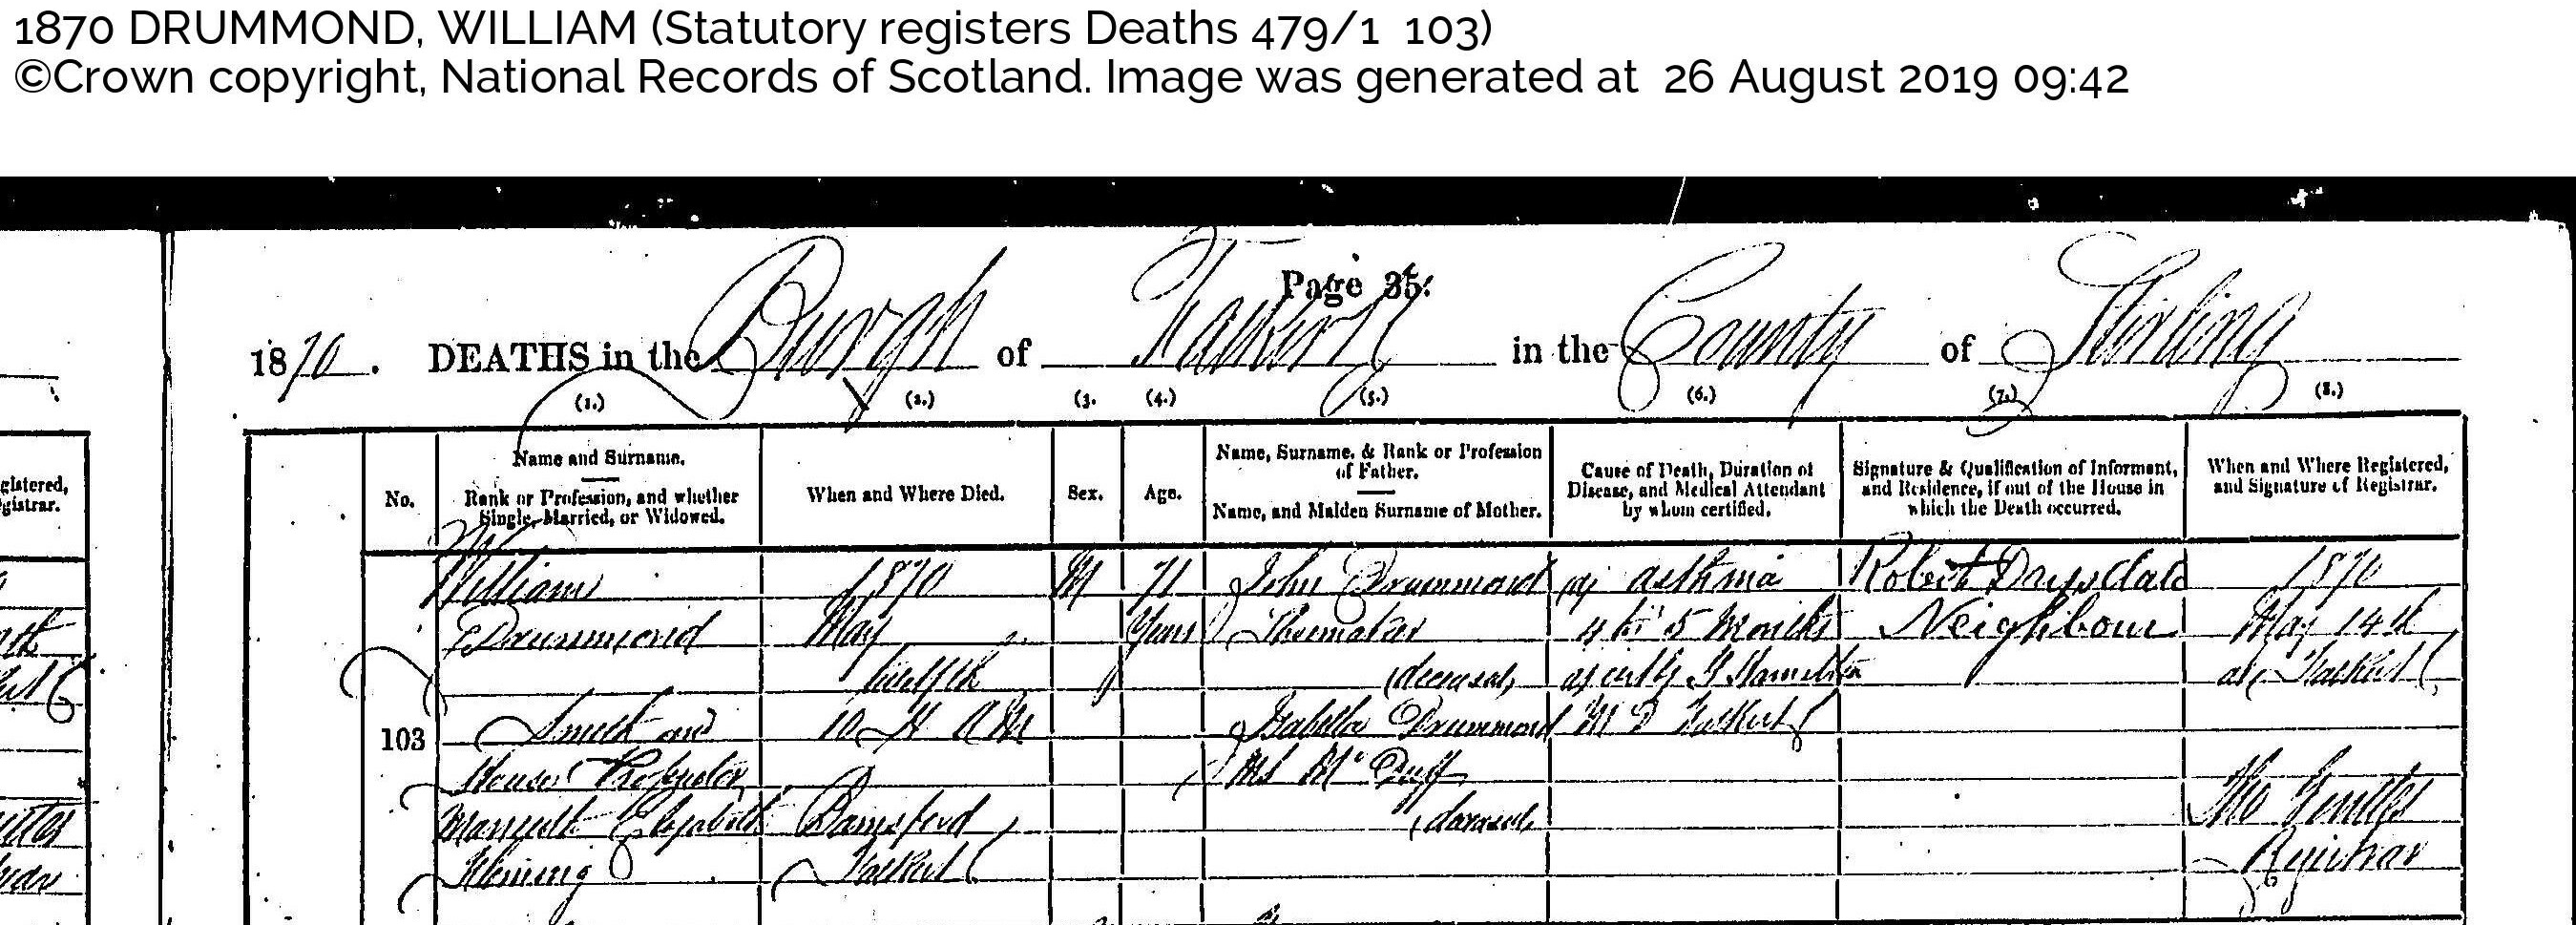 1870 DRUMMOND, WILLIAM (Statutory registers Deaths 479/1 103)
©Crown copyright, National Records of Scotland. Image was generated at 26 August 2019 09:42
Page 35.
1870. DEATHS in the Burgh of Falkirk in the County of Stirling
(1.) (2.) (3. (4.) (5.) (6.) (7.) (8.)
No.
Name and Surname.
Rank or Profession, and whether
Single, Married, or Widowed.
When and Where Died.
Sex.
Age.
Name, Surname, & Rank or Profession
of Father.
Name, and Maiden Surname of Mother.
Cause of Death, Duration of
Disease, and Medical Attendant
by whom certified.
Signature & Qualification of Informant,
and Residence, if out of the House in
which the Death occurred.
When and Where Registered,
and Signature of Registrar.
gistered,
gistrar.
103
William
Drummond
Smith and
House Proprietor
Married to Elizabeth
Fleming
1870
May
twelfth
10 H AM
Bainsford
Falkirk
M
71
Years
John Drummond
Shoemaker
(deceased)
Isabella Drummond
MS McDuff
(deceased)
asthma
4 to 5 Months
as cert by G Hamilton
M D Falkirk
Robert Drysdale
Neighbour
1870
May 14th
at Falkirk
Tho Gentles
Registrar